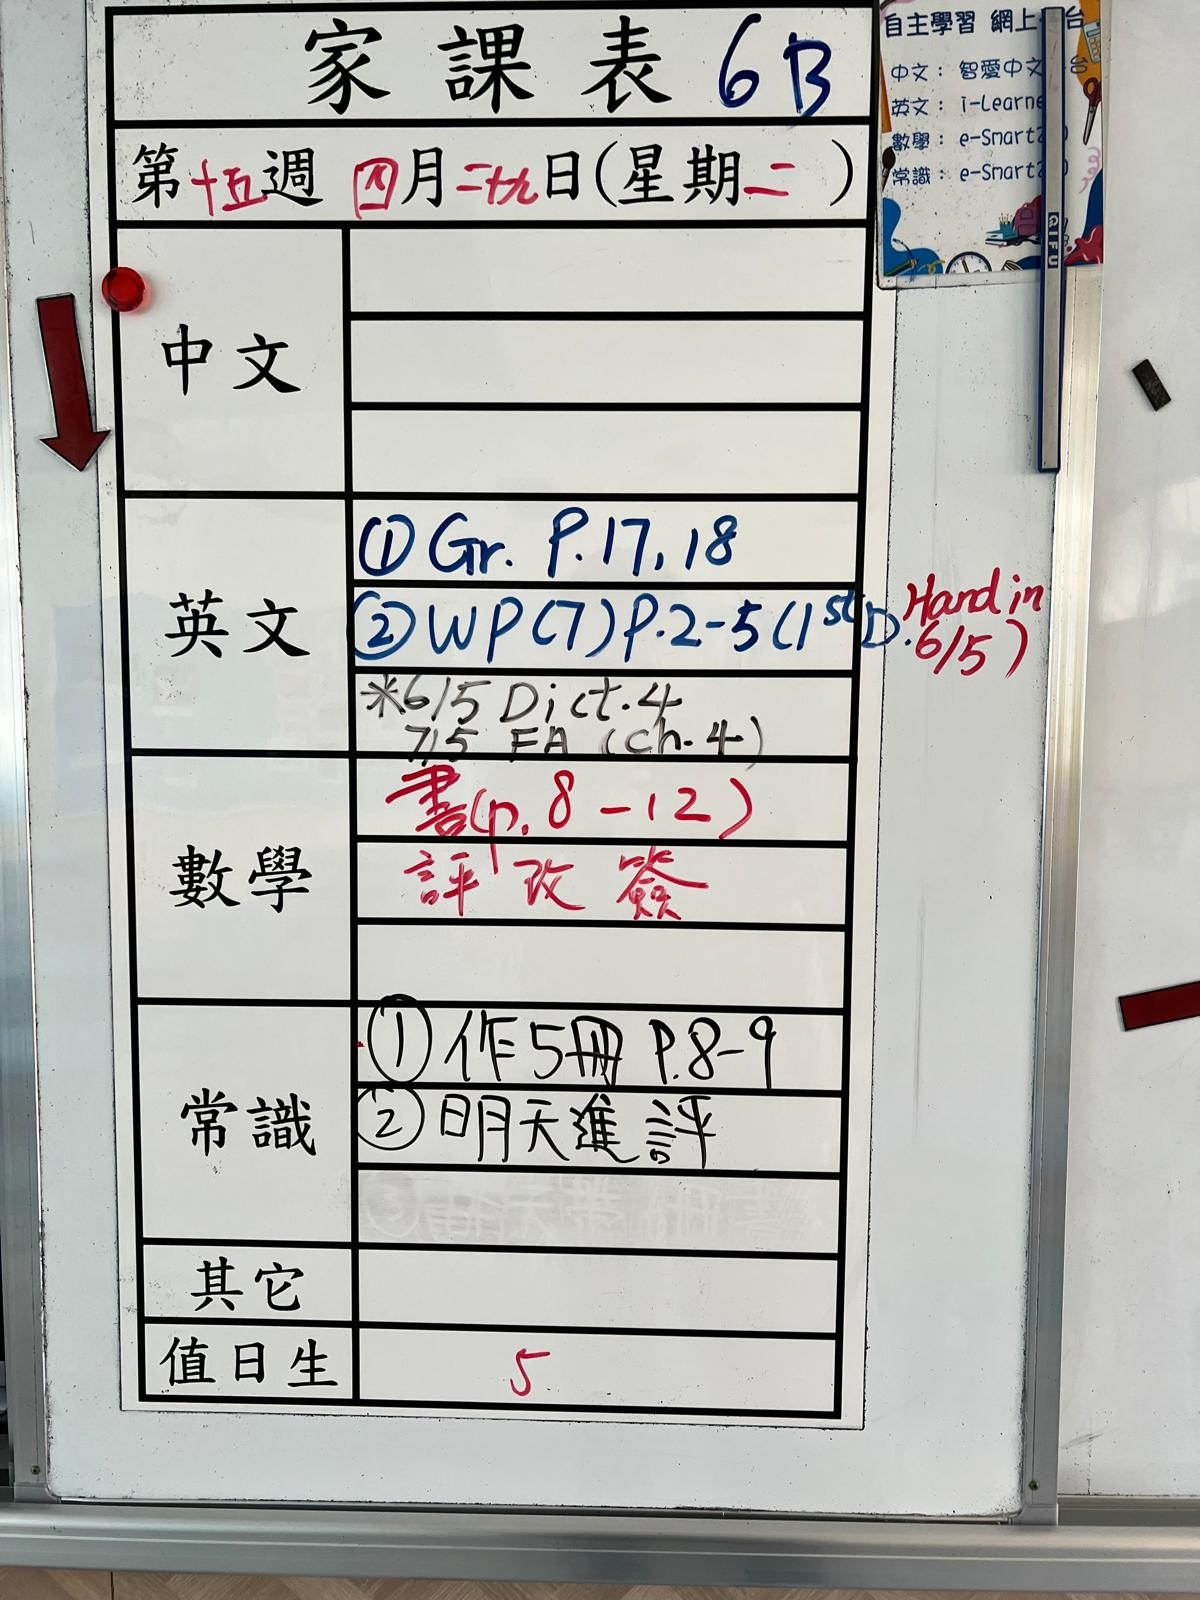 家課表 6B
第十五週 四月二十九日(星期二)
中文
英文
① Gr. P.17, 18
② WP(7) P.2-5 (1st D. Hand in 6/5)
※6/5 Dict. 4
7/5 FA (Ch. 4)
數學
書(p. 8-12)
評改簽
常識
① 作5冊 P.8-9
② 明天進評
其它
值日生
5
自主學習 網上 台
中文： 智愛中文 台
英文： i-Learne
數學： e-Smart
常識： e-Smart
GIFU